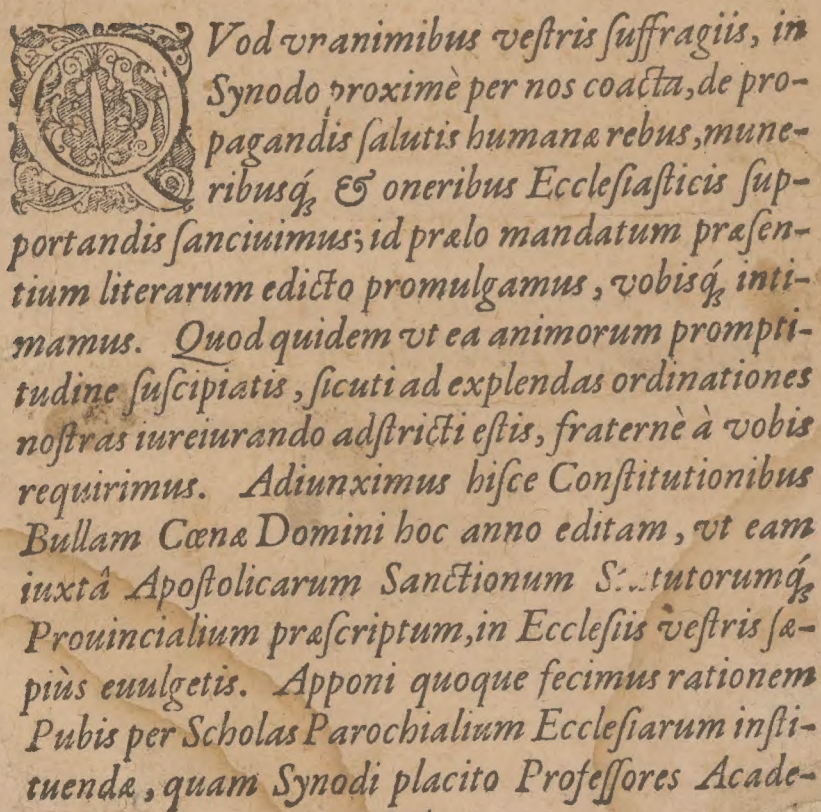 QVod vnanimibus veſtris ſuffragiis, in
Synodo proximè per nos coacta, de pro-
pagandis ſalutis humanæ rebus, mune-
ribusq́ꝫ & oneribus Eccleſiaſticis ſup-
portandis ſanciuimus; id prælo mandatum præſen-
tium literarum edicto promulgamus, vobisq́ꝫ inti-
mamus. Quod quidem vt ea animorum prompti-
tudine ſuſcipiatis, ſicuti ad explendas ordinationes
noſtras iureiurando adſtricti eſtis, fraternè à vobis
requirimus. Adiunximus hiſce Conſtitutionibus
Bullam Cœnæ Domini hoc anno editam, vt eam
iuxtâ Apoſtolicarum Sanctionum Statutorumq́ꝫ
Prouincialium præſcriptum, in Eccleſiis veſtris ſæ-
piùs euulgetis. Apponi quoque fecimus rationem
Pubis per Scholas Parochialium Eccleſiarum inſti-
tuendæ, quam Synodi placito Profeſſores Acade-